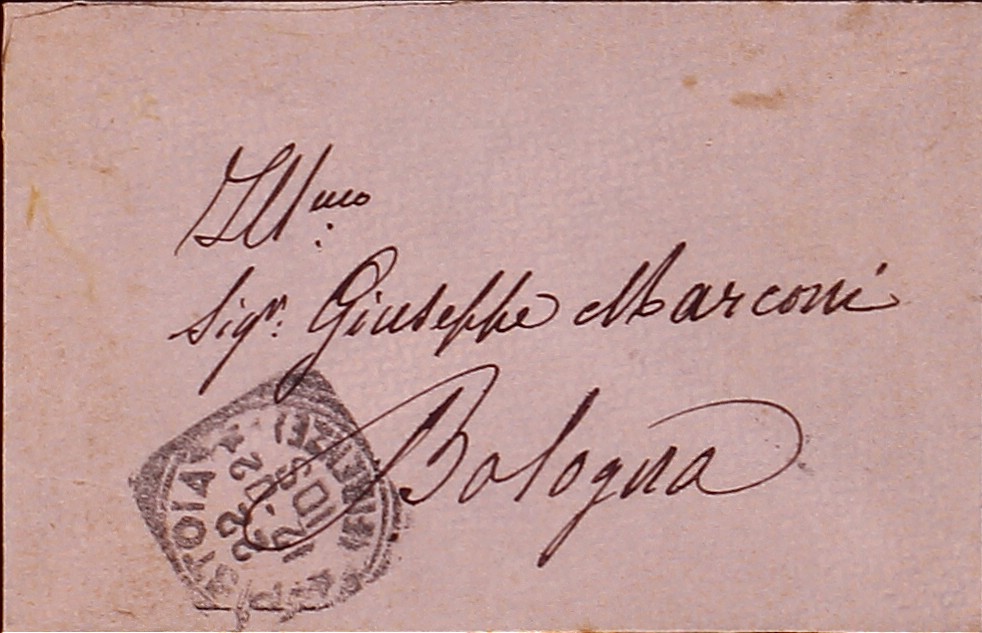 Ill.mo
Sigr. Giuseppe Marconi
Bologna
(FIRENZE)